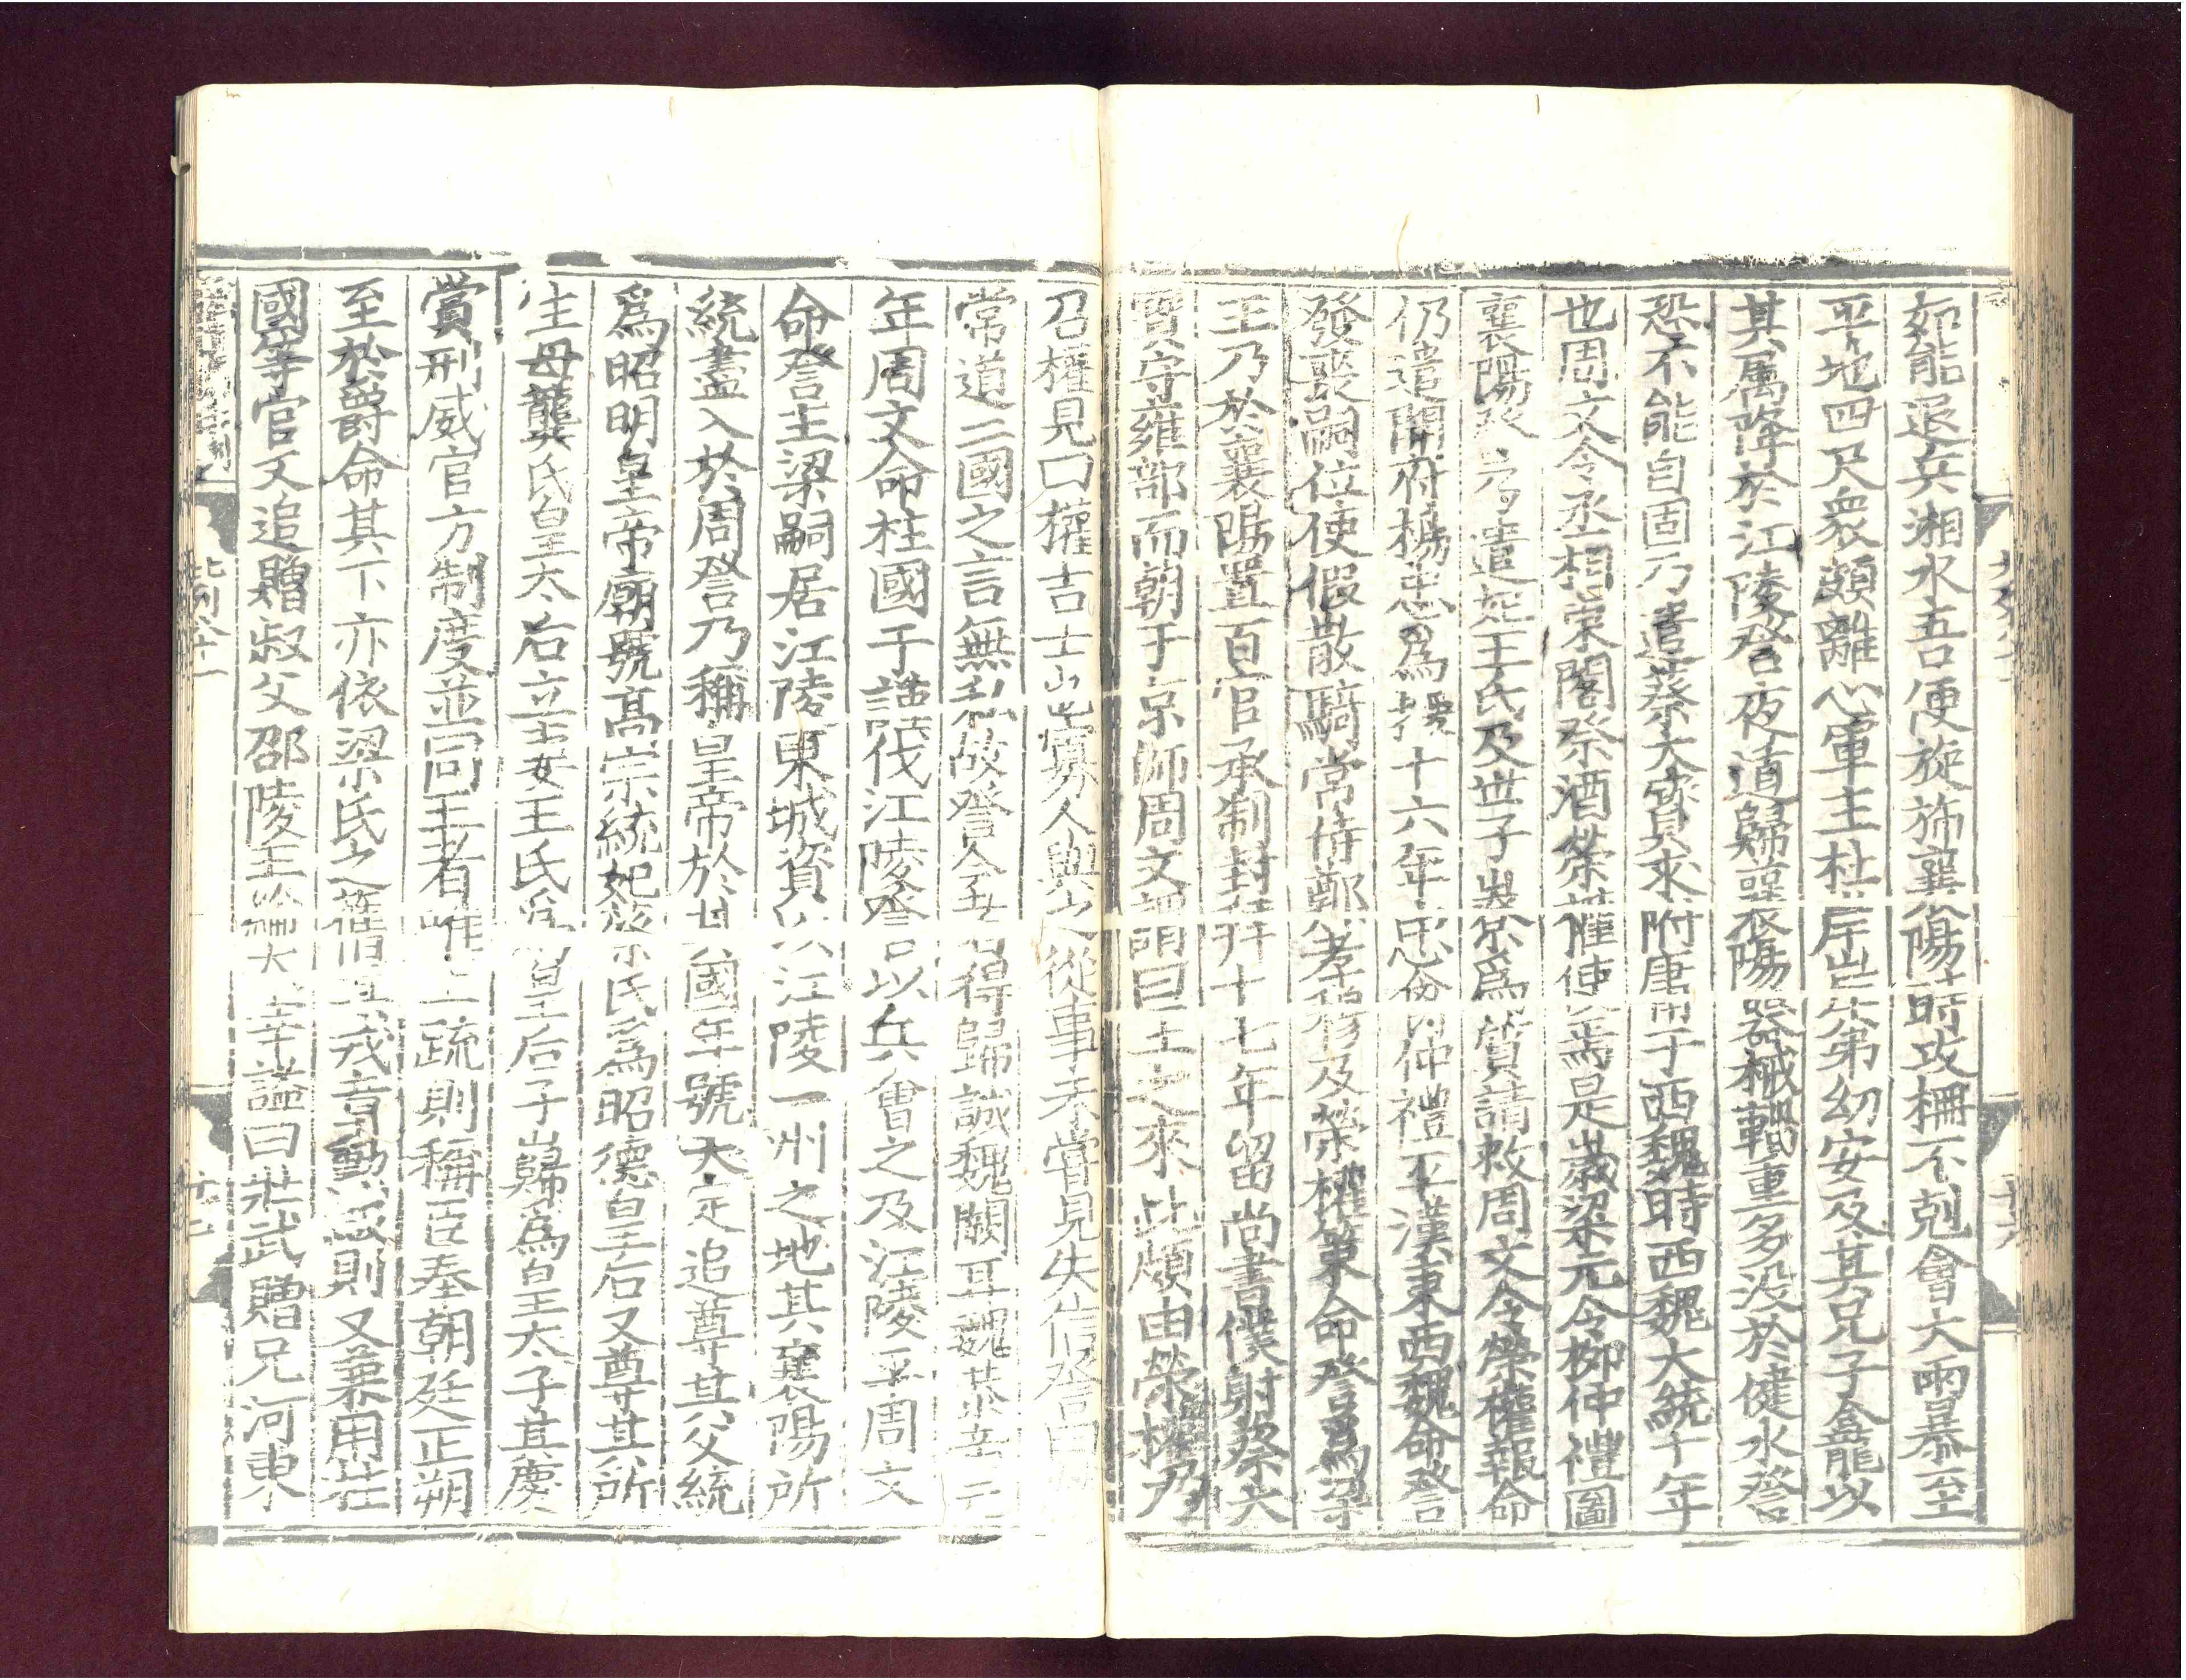 如能退兵湘水吾便旋斾襄陽時攻柵不剋會大雨暴至
平地四尺衆頗離心軍主杜岸岸弟幼安及其兄子龕以
其屬降於江陵詧夜遁歸襄陽器械輜重多没於湕水詧
恐不能自固乃遣蔡大寶求附庸于西魏時西魏大統十年
也周文令丞相東閤祭酒榮權使焉是歲梁元令柳仲禮圖
襄陽詧乃遣妃王氏及世子嶚爲質請救周文令榮權報命
仍遣開府楊忠爲援十六年忠仲禮平漢東西魏命詧
發喪嗣位使假散騎常侍鄭孝穆及榮權策命詧爲梁
王乃於襄陽置百官承制封拜十七年留尚書僕射蔡大
寶守雍部而朝于京師周文謂曰王之來此頗由榮權乃
召權見曰權吉士也寡人與之從事未嘗見失信詧曰
常道二國之言無私故詧今者得歸誠魏闕耳魏恭帝元
年周文命柱國于謹伐江陵詧以兵會之及江陵平周文
命詧主梁嗣居江陵東城資以江陵一州之地其襄陽所
統盡入於周詧乃稱皇帝於其國年號大定追尊其父統
爲昭明皇帝廟號高宗統妃蔡氏爲昭德皇后又尊其所
生母龔氏皇太后立妻王氏爲皇后子巋爲皇太子其慶
賞刑威官方制度並同王者唯上疏則稱臣奉朝廷正朔
至於爵命其下亦依梁氏之舊其戎章勳級則又兼用柱
國等官又追贈叔父邵陵王綸太宰謚曰壯武贈兄河東
北列八十一